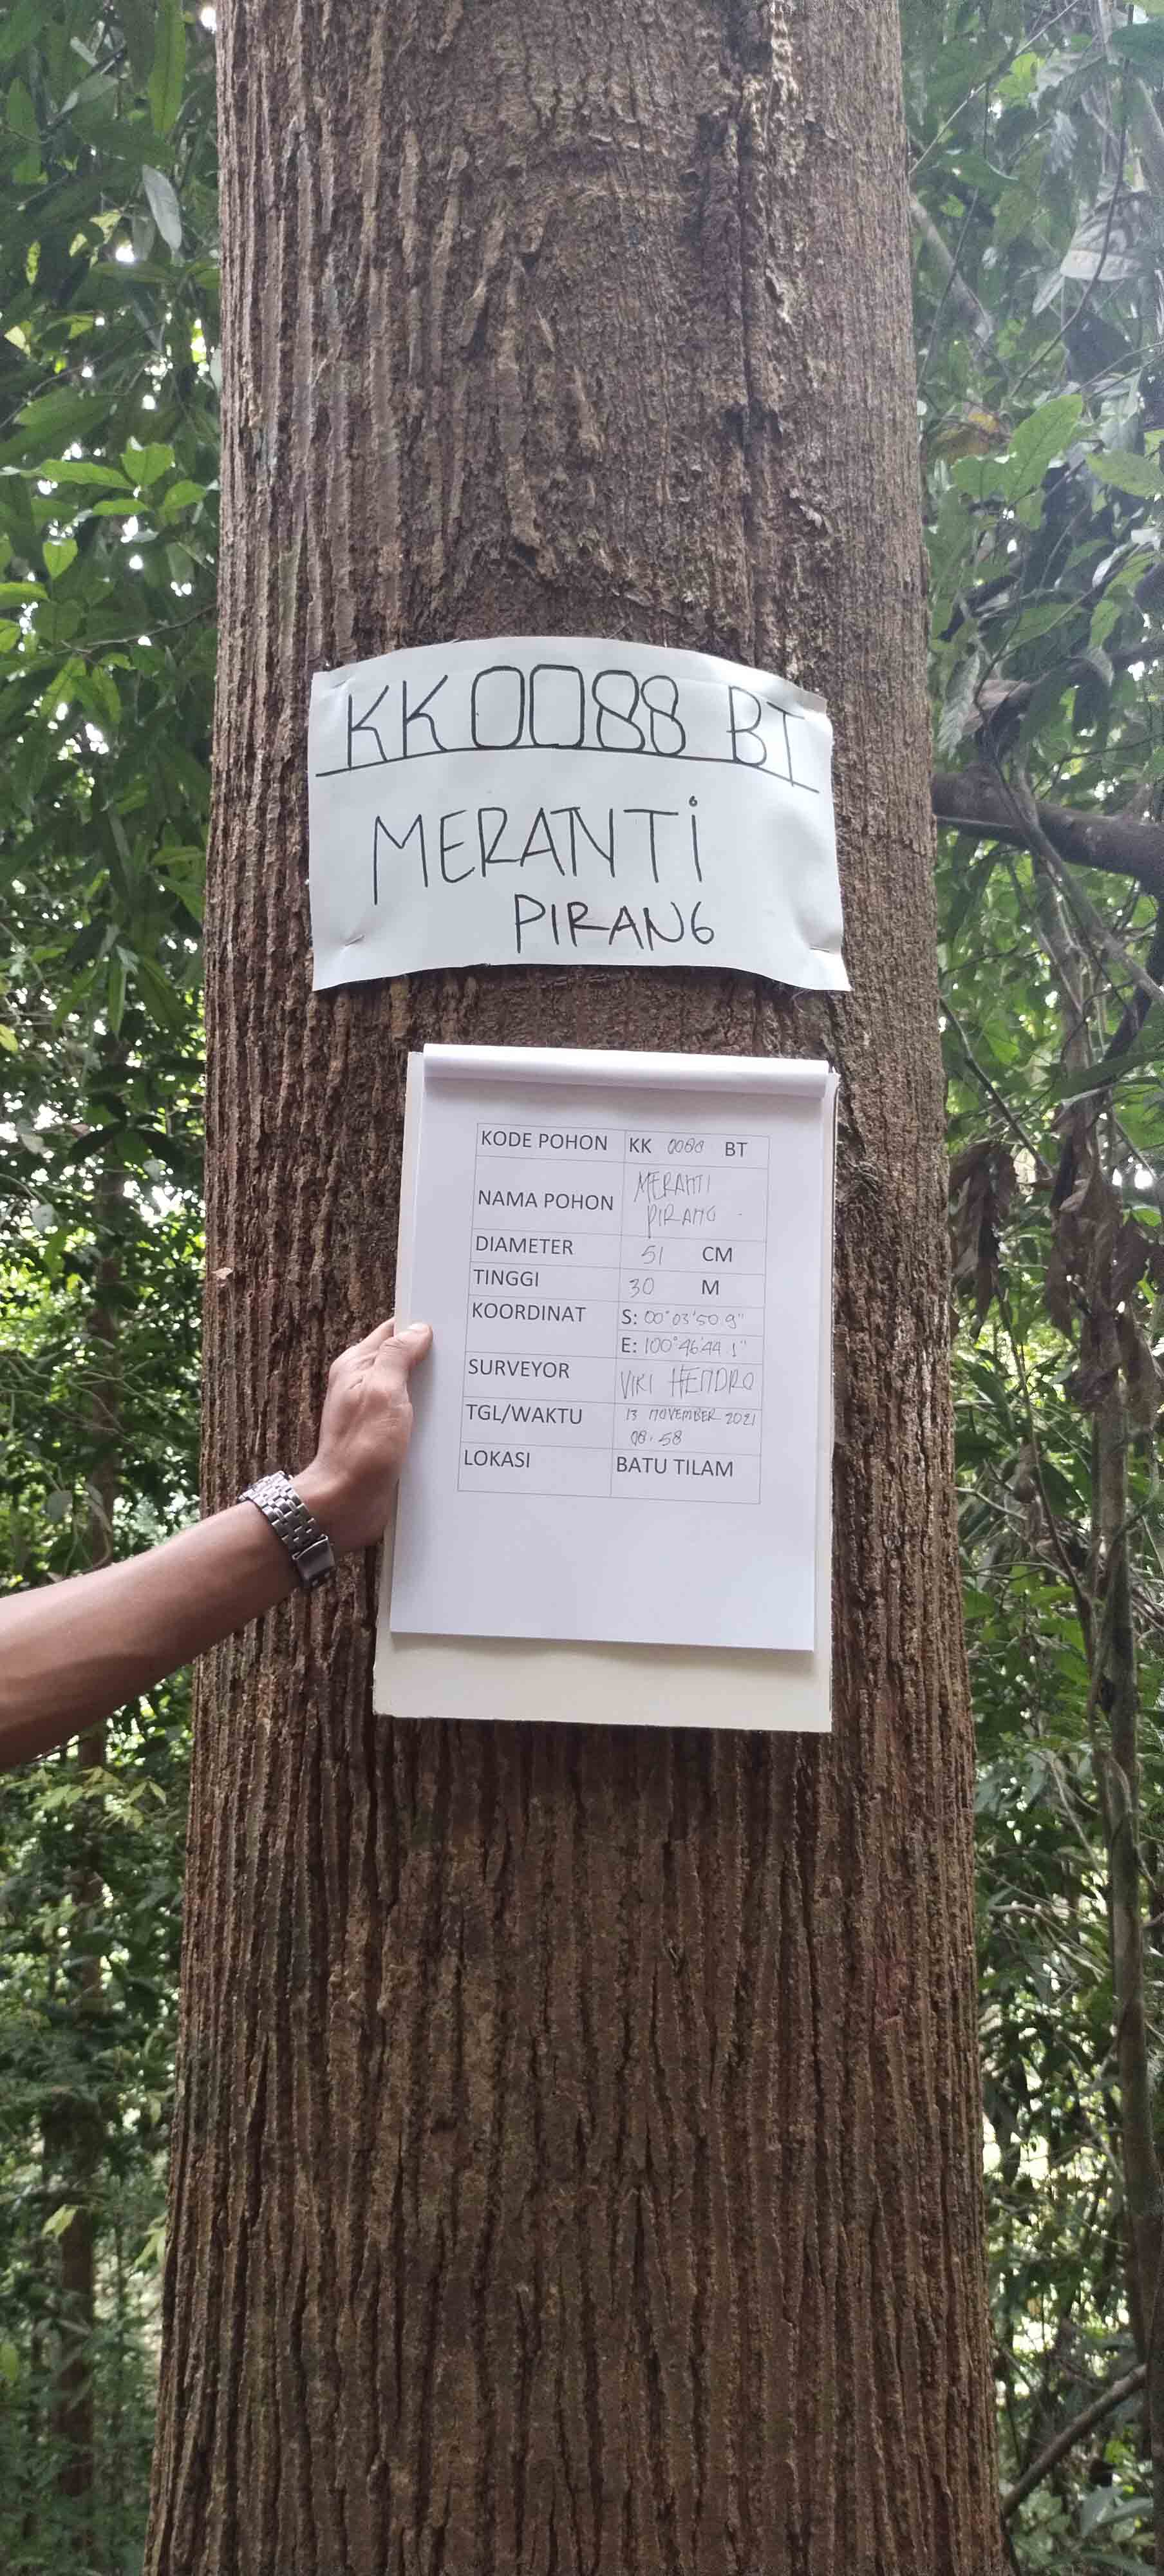 KK0088 BT
MERANTi
PIRANG
KODE POHON KK 0088 BT
NAMA POHON MERANTI
PIRANG
DIAMETER 51 CM
TINGGI 30 M
KOORDINAT S: 00°03'50.9"
E: 100°46'44.1"
SURVEYOR VIKI HENDRO
TGL/WAKTU 13 NOVEMBER 2021
08.58
LOKASI BATU TILAM